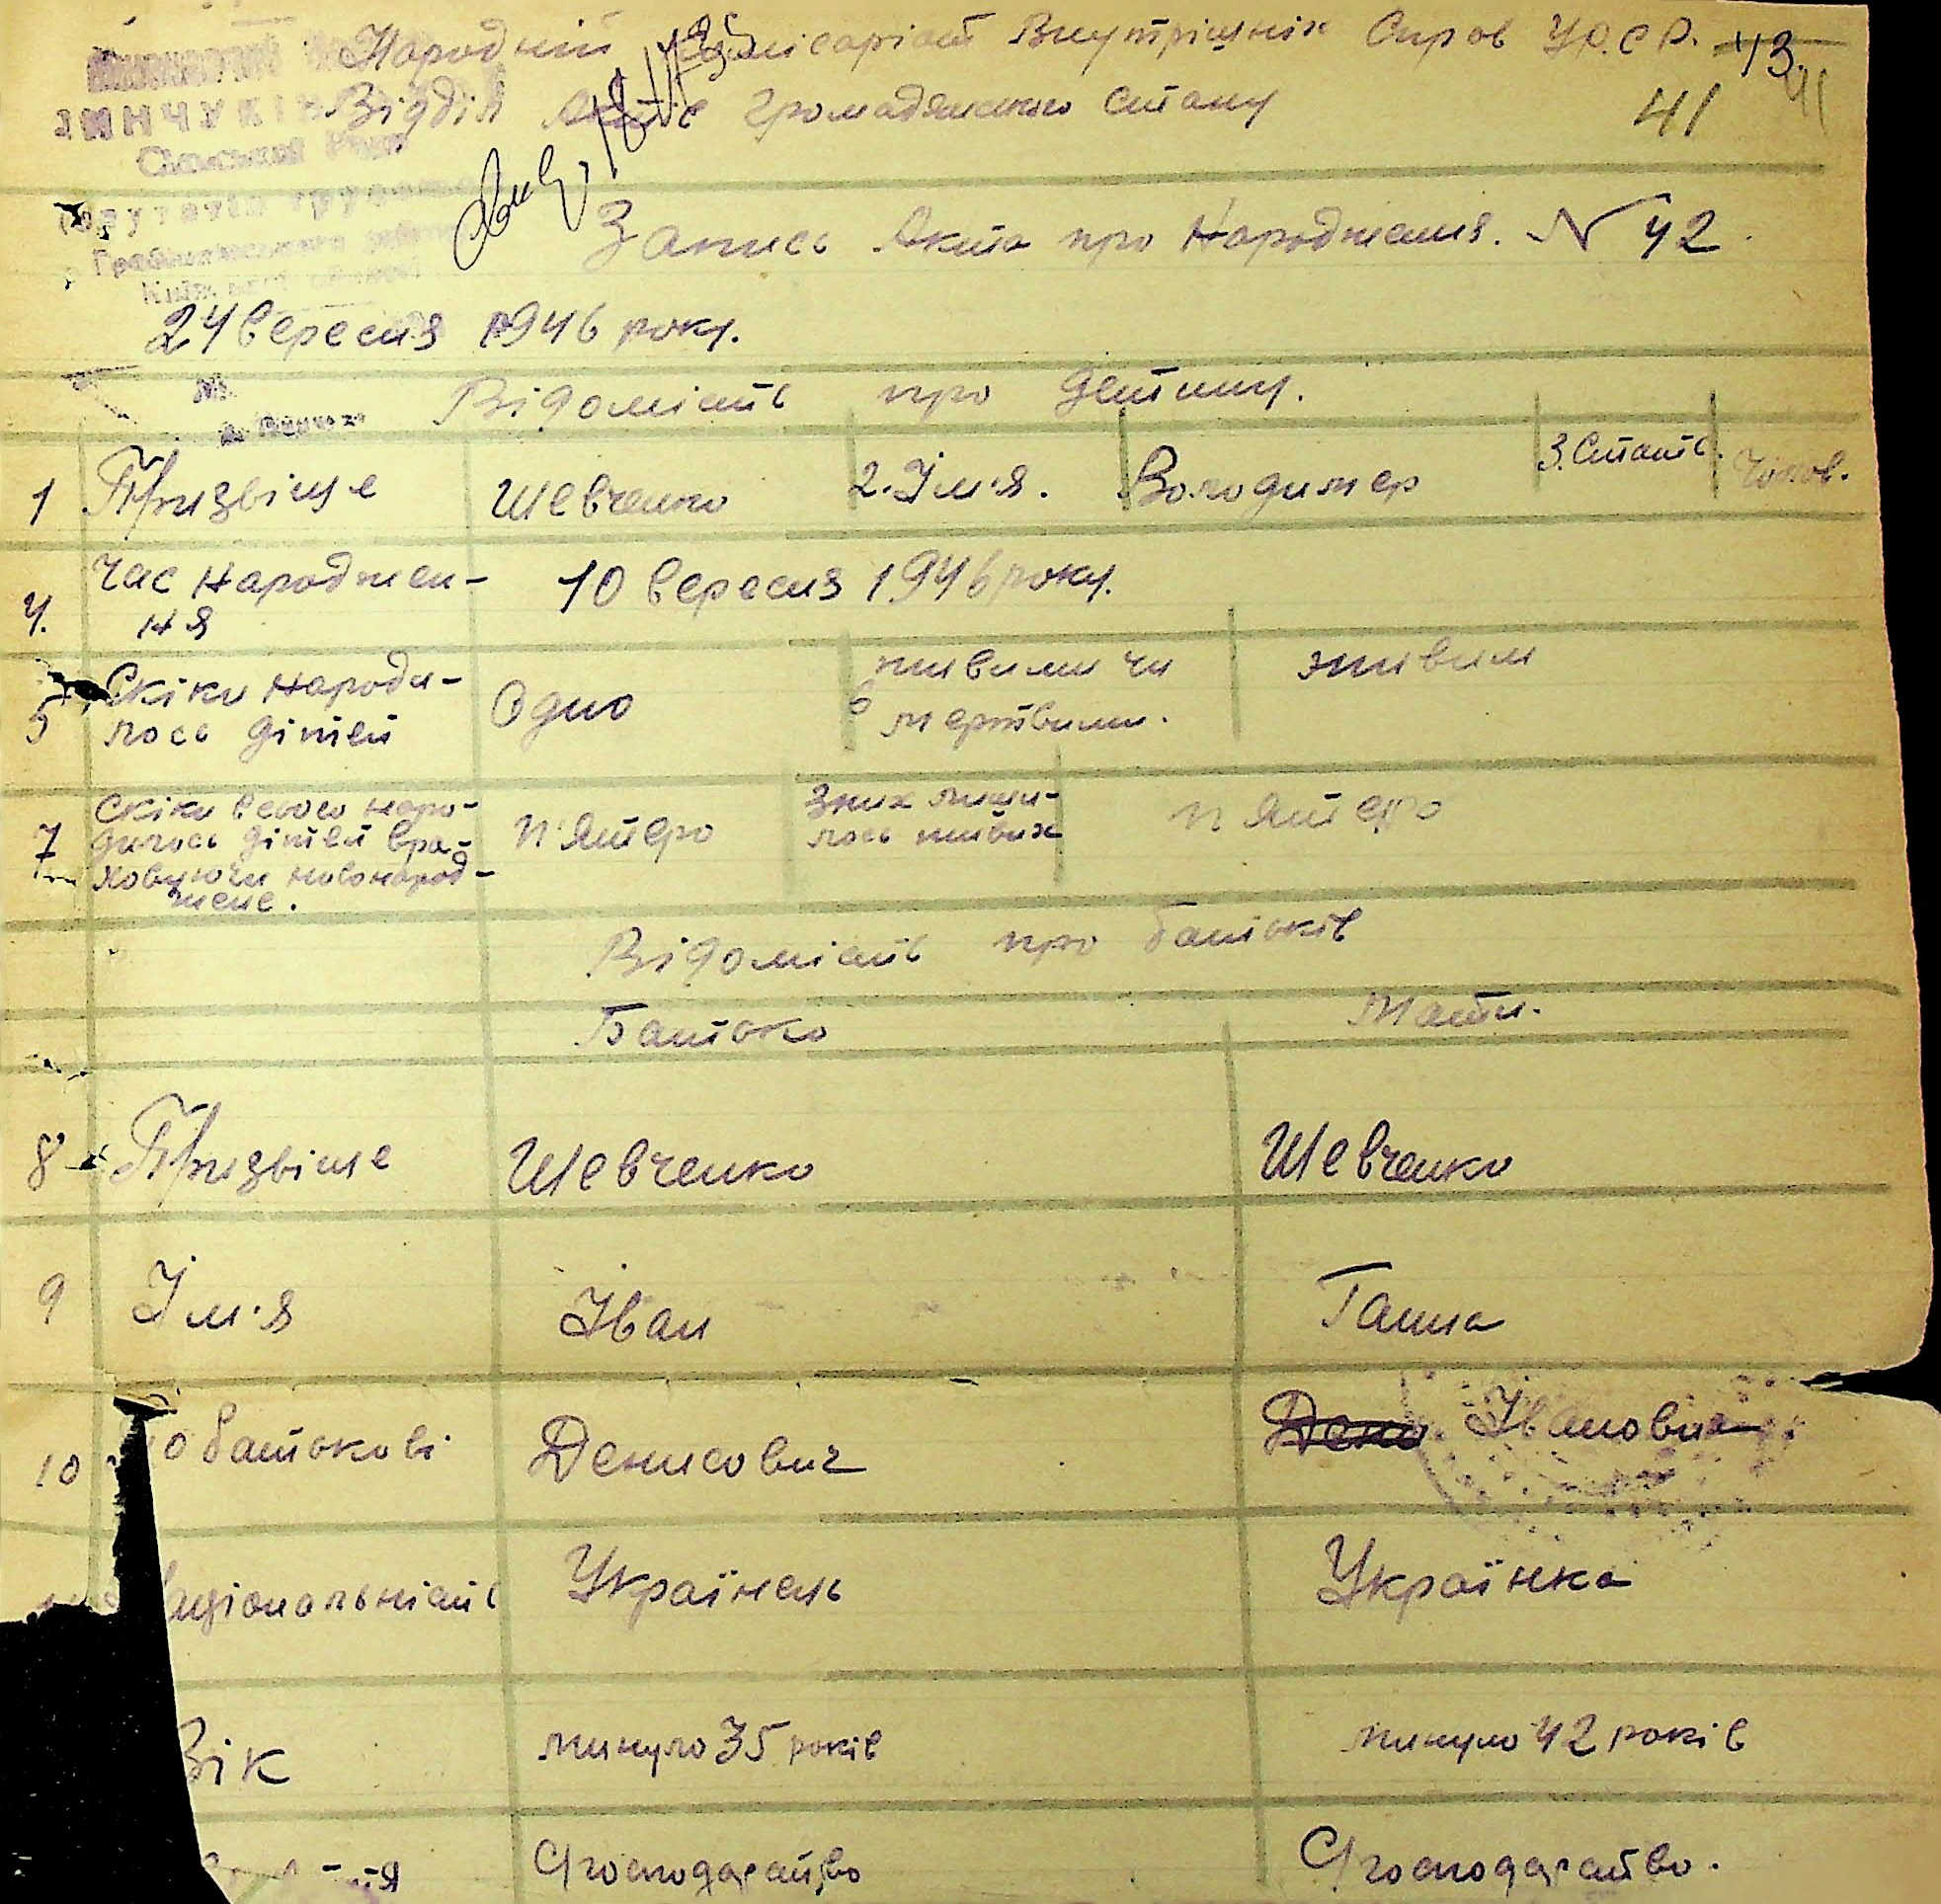 Народній Комісаріат Внутрішніх Справ У.Р.С.Р. 43.
Відділ Актів Громадянського Стану 41
Запись Акта про Народження. N 42
24 Вересня 1946 року.
Відомість про дитину.
1 Призвіще Шевченко 2. Ім'я. Володимер 3. Стать. Чолов.
4. Час Народжен-
ня 10 Вересня 1946 року.
5 Скіки народи-
лось дітей Одно 6 живими чи
мертвими. живим
7 Скіки всього наро-
дилось дітей вра-
ховуючи новонарод-
жене. п'ятеро З них лиши-
лось живих п'ятеро
Відомість про батьків
Батько Мати.
8 Призвіще Шевченко Шевченко
9 Ім'я Іван Ганна
10 о батькові Денисович Дени Івановна
аціональність Українець Українка
Вік минуло 35 років минуло 42 років
С/господарство С/господарство.